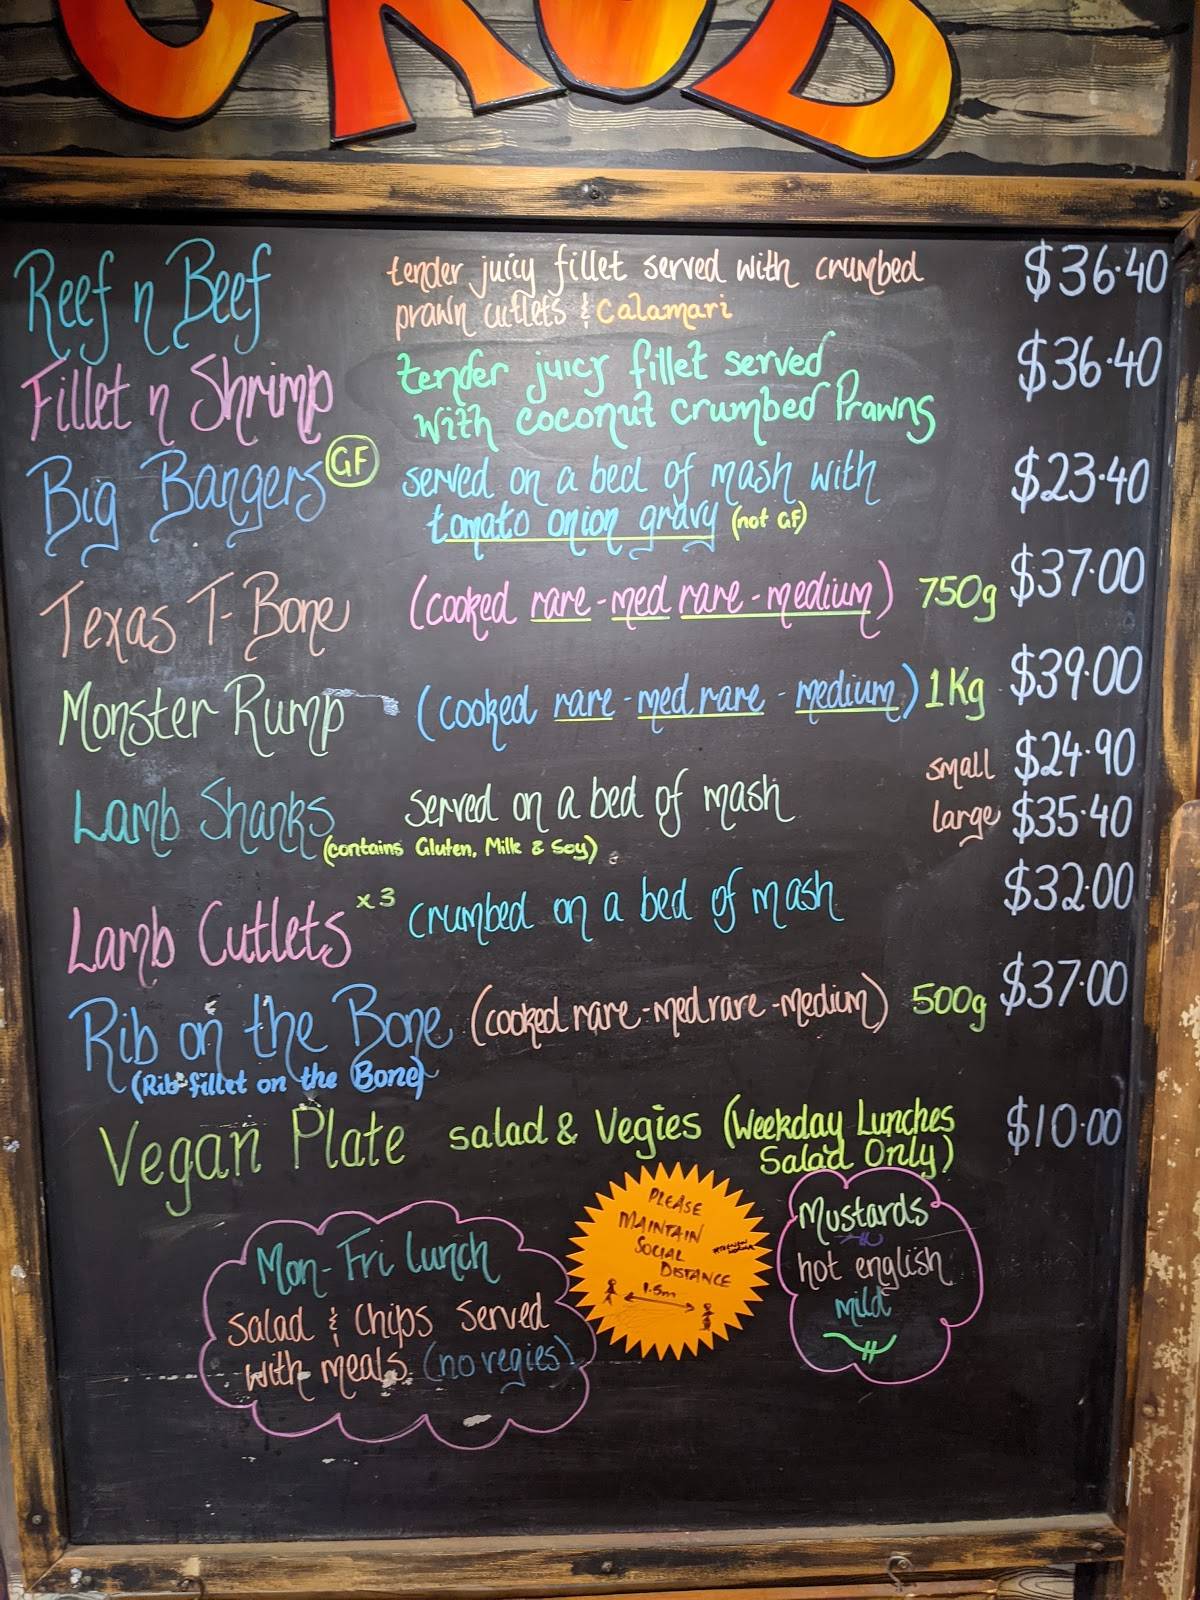 GRUB
Reef n Beef tender juicy fillet served with crumbed $36.40
prawn cutlets & calamari
Fillet n Shrimp tender juicy fillet served $36.40
with coconut crumbed Prawns
Big Bangers GF served on a bed of mash with $23.40
tomato onion gravy (not GF)
Texas T-Bone (cooked rare-med rare-medium) 750g $37.00
Monster Rump (cooked rare-med rare-medium) 1Kg $39.00
small $24.90
Lamb Shanks Served on a bed of mash large $35.40
(contains Gluten, Milk & Soy)
Lamb Cutlets x3 crumbed on a bed of mash $32.00
Rib on the Bone (cooked rare-med rare-medium) 500g $37.00
(Rib fillet on the Bone)
Vegan Plate salad & Vegies (Weekday Lunches $10.00
Salad Only)
Mon-Fri lunch
salad & chips served
with meals (no vegies)
PLEASE
MAINTAIN
SOCIAL
DISTANCE
1.5m
Mustards
hot english
mild